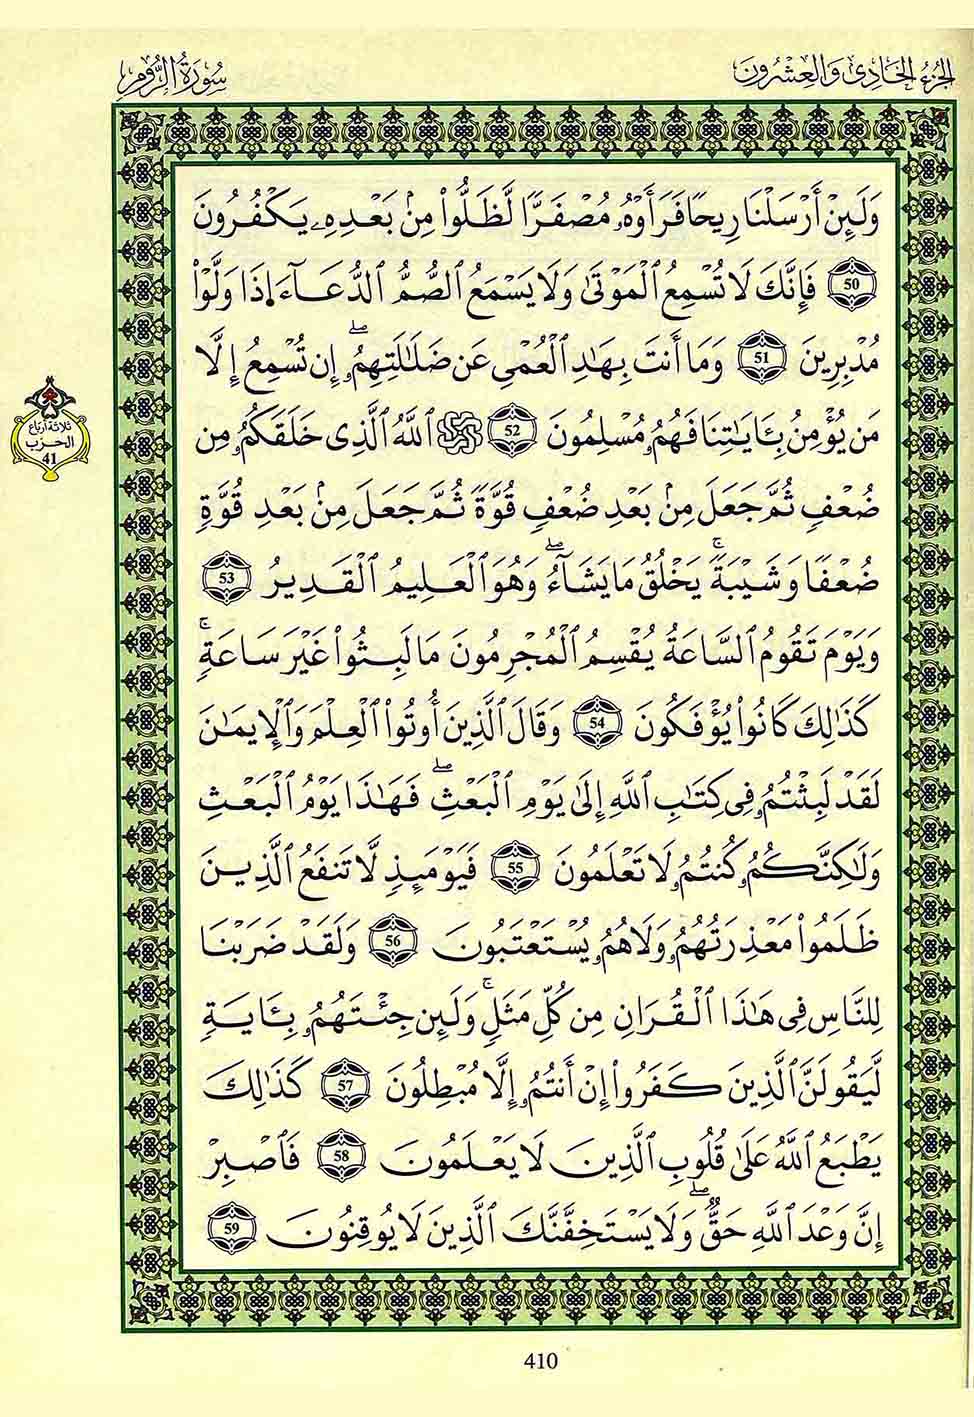 الجزء الحادي والعشرون
سورة الروم
وَلَئِنْ أَرْسَلْنَا رِيحًا فَرَأَوْهُۥ مُصْفَرًّا لَّظَلُّوا۟ مِنۢ بَعْدِهِۦ يَكْفُرُونَ
50 فَإِنَّكَ لَا تُسْمِعُ ٱلْمَوْتَىٰ وَلَا يَسْمَعُ ٱلصُّمُّ ٱلدُّعَآءَ ا۪ذَا وَلَّوْا۟
مُدْبِرِينَ 51 وَمَا أَنتَ بِهَٰدِ ٱلْعُمْيِ عَن ضَلَٰلَتِهِمُۥٓۖ إِن تُسْمِعُ إِلَّا
مَن يُؤْمِنُ بِـَٔايَٰتِنَا فَهُمُۥ مُسْلِمُونَ 52 ٱللَّهُ ٱلَّذِى خَلَقَكُمُۥ مِن
ضُعْفٍ ثُمَّ جَعَلَ مِنۢ بَعْدِ ضُعْفٍ قُوَّةً ثُمَّ جَعَلَ مِنۢ بَعْدِ قُوَّةٍ
ضُعْفًا وَشَيْبَةًۚ يَخْلُقُ مَا يَشَآءُۖ وَهُوَ ٱلْعَلِيمُ ٱلْقَدِيرُ 53
وَيَوْمَ تَقُومُ ٱلسَّاعَةُ يُقْسِمُ ٱلْمُجْرِمُونَ مَا لَبِثُوا۟ غَيْرَ سَاعَةٍۚ
كَذَٰلِكَ كَانُوا۟ يُؤْفَكُونَ 54 وَقَالَ ٱلَّذِينَ أُوتُوا۟ ٱلْعِلْمَ وَٱلْإِيمَٰنَ
لَقَدْ لَبِثْتُمُۥ فِى كِتَٰبِ ٱللَّهِ إِلَىٰ يَوْمِ ٱلْبَعْثِۖ فَهَٰذَا يَوْمُ ٱلْبَعْثِ
وَلَٰكِنَّكُمُۥ كُنتُمُۥ لَا تَعْلَمُونَ 55 فَيَوْمَئِذٍ لَّا تَنفَعُ ٱلَّذِينَ
ظَلَمُوا۟ مَعْذِرَتُهُمُۥ وَلَا هُمُۥ يُسْتَعْتَبُونَ 56 وَلَقَدْ ضَرَبْنَا
لِلنَّاسِ فِى هَٰذَا ٱلْقُرَانِ مِن كُلِّ مَثَلٍۚ وَلَئِن جِئْتَهُمُۥ بِـَٔايَةٍ
لَّيَقُولَنَّ ٱلَّذِينَ كَفَرُوا۟ إِنْ أَنتُمُۥٓ إِلَّا مُبْطِلُونَ 57 كَذَٰلِكَ
يَطْبَعُ ٱللَّهُ عَلَىٰ قُلُوبِ ٱلَّذِينَ لَا يَعْلَمُونَ 58 فَٱصْبِرْ
إِنَّ وَعْدَ ٱللَّهِ حَقٌّۖ وَلَا يَسْتَخِفَّنَّكَ ٱلَّذِينَ لَا يُوقِنُونَ 59
ثلاثة أرباع
الحزب
41
410